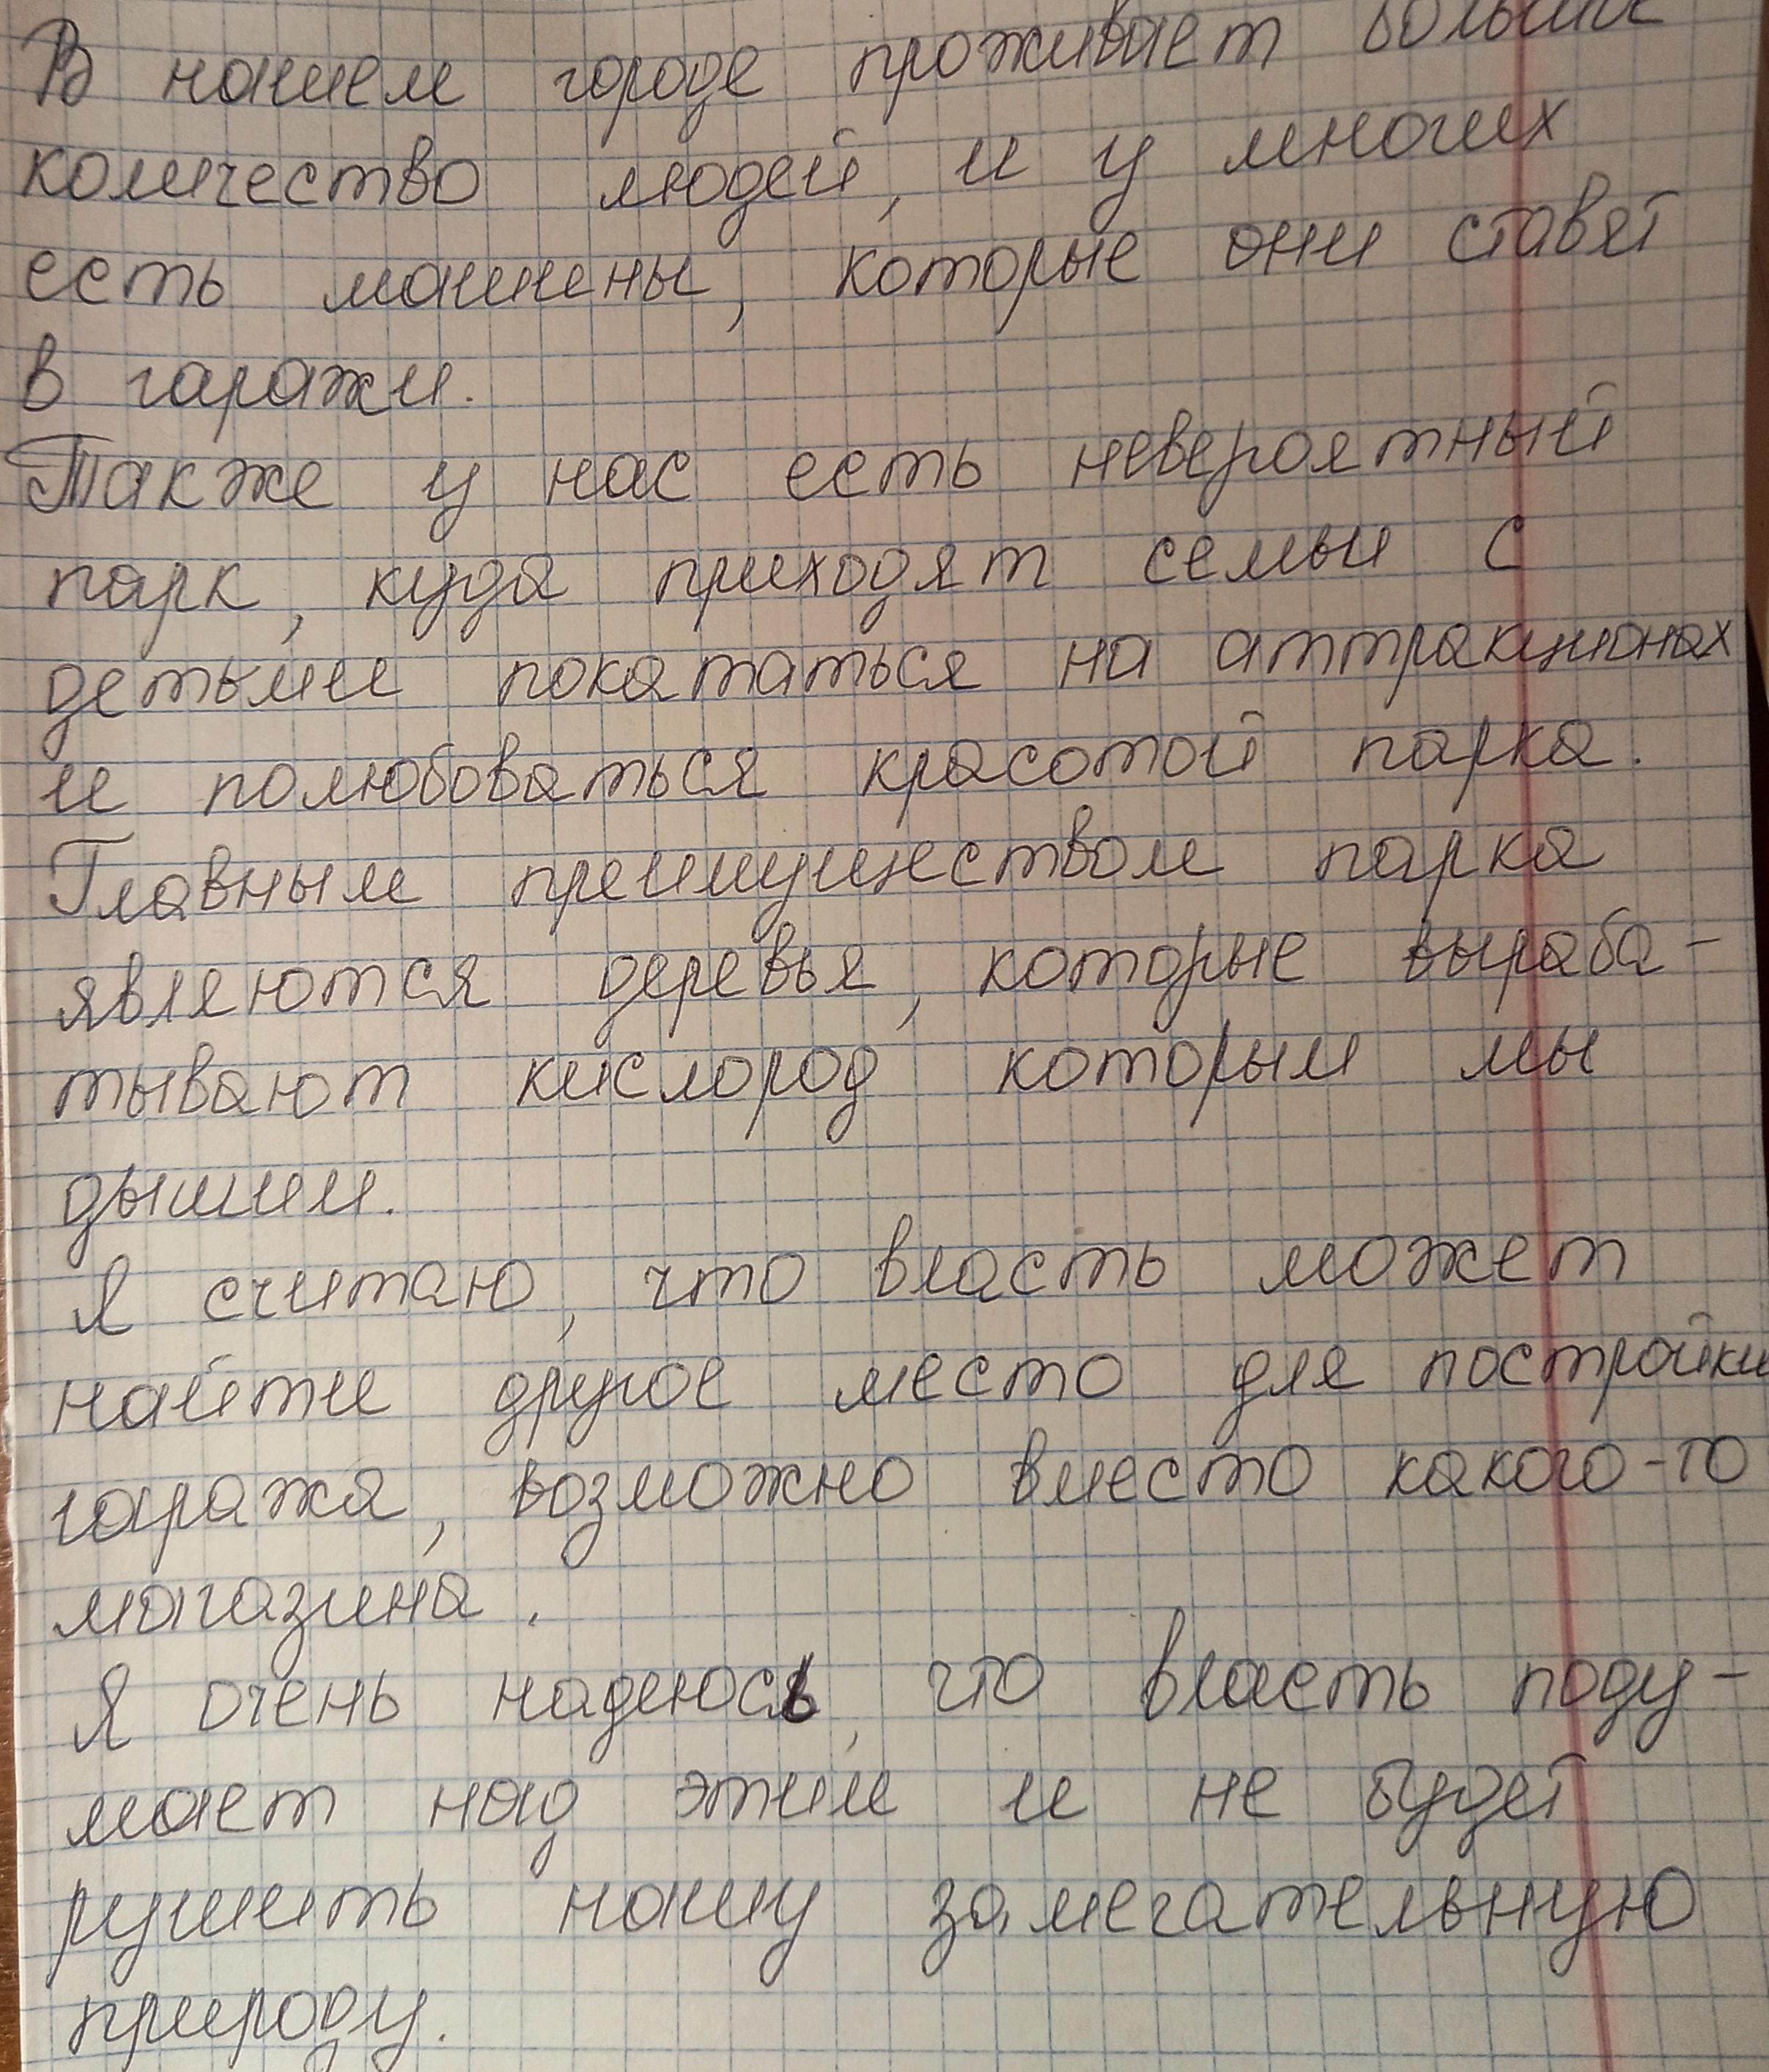 В нашем городе проживает большое
количество людей, и у многих
есть машины, которые они ставят
в гаражи.
Также у нас есть невероятный
парк, куда приходят семьи с
детьми покататься на аттракционах
и полюбоваться красотой парка.
Главным преимуществом парка
являются деревья, которые выраба-
тывают кислород которым мы
дышим.
Я считаю, что власть может
найти другое место для постройки
гаража, возможно вместо какого-то
магазина.
Я очень надеюсь, что власть поду-
мает над этим и не будет
рушить нашу замечательную
природу.